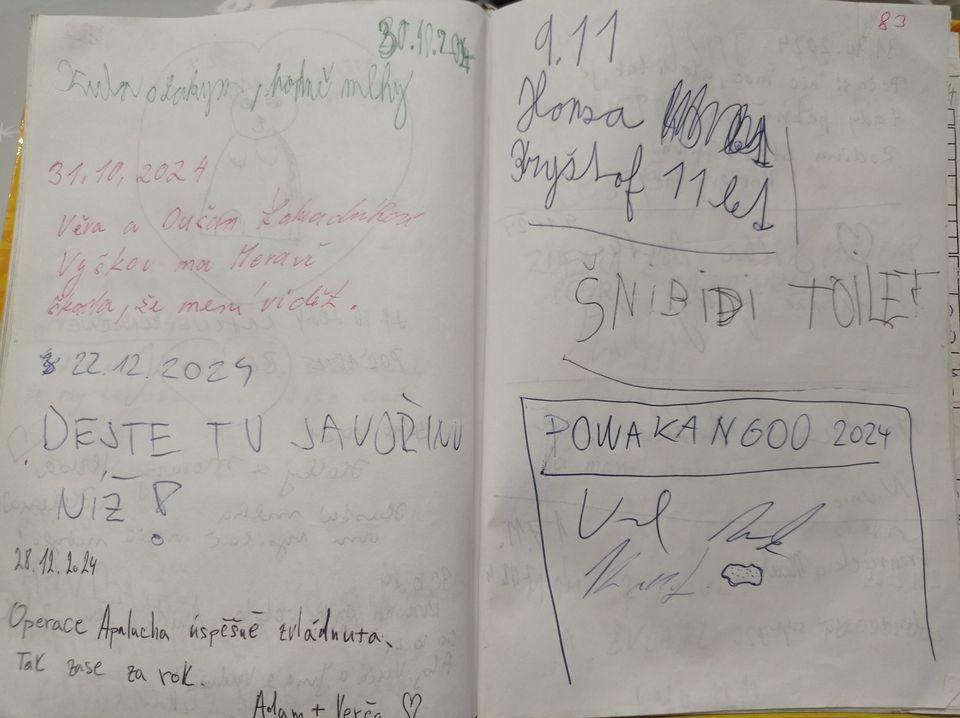 30.10.2024
hodně mlhy
31.10.2024
Věra a Dušan
Vyškov na Moravě
škoda, že není vidět.
22.12.2024
DEJTE TU JAVOŘINU
NÍŽ!
28.12.2024
Operace Apalucha úspěšně zvládnuta.
Tak zase za rok.
Adam + Verča ♡
83
9.11
Honza
Kryštof 11 let
ŠNIBIDI TOILET
POWAKANGOO 2024